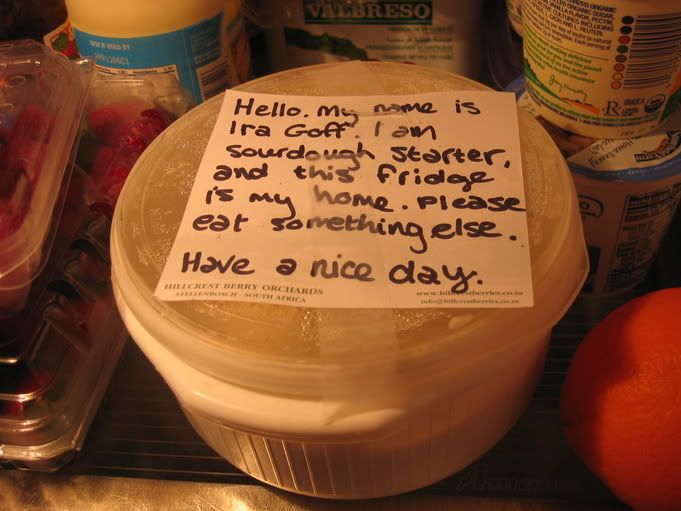 VALBRESO
BEST if USED BY
Hello. My name is
Ira Goff. I am
sourdough starter,
and this fridge
is my home. Please
eat something else.
Have a nice day.
HILLCREST BERRY ORCHARDS
STELLENBOSCH - SOUTH AFRICA
www.hillcrestberries.co.za
info@hillcrestberries.co.za
GRADE A